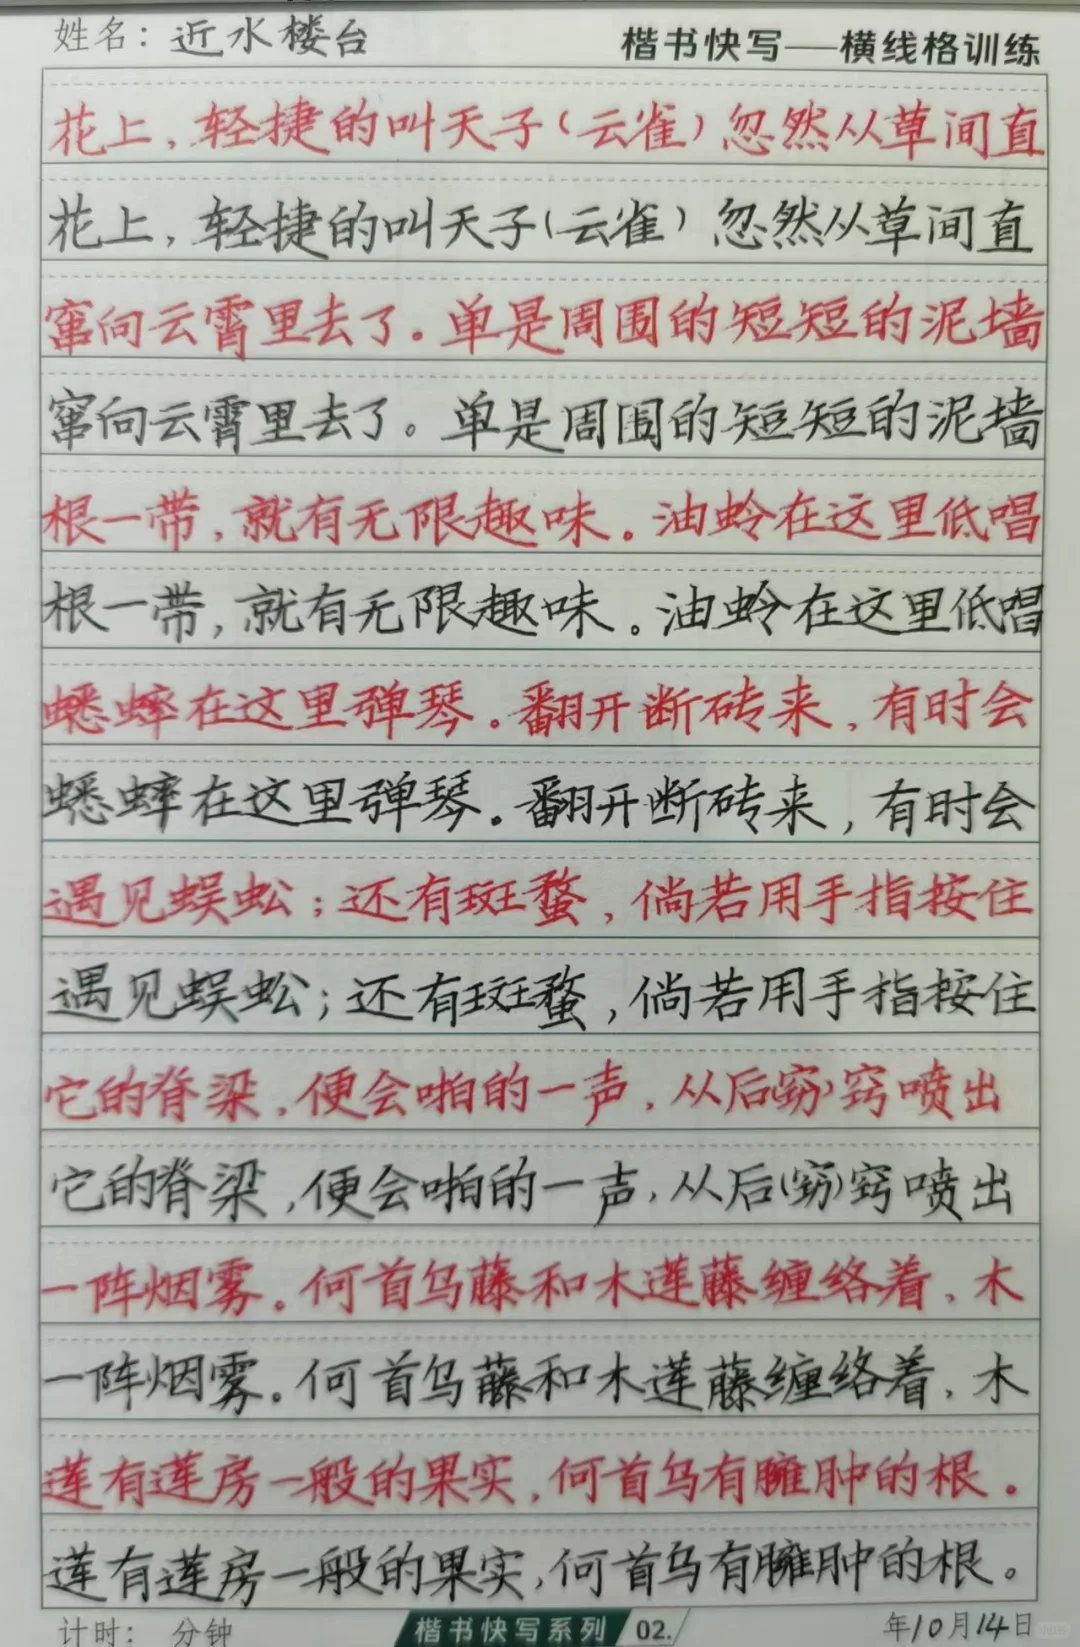 姓名：近水楼台
楷书快写——横线格训练
花上，轻捷的叫天子（云雀）忽然从草间直
花上，轻捷的叫天子（云雀）忽然从草间直
窜向云霄里去了。单是周围的短短的泥墙
窜向云霄里去了。单是周围的短短的泥墙
根一带，就有无限趣味。油蛉在这里低唱
根一带，就有无限趣味。油蛉在这里低唱
蟋蟀在这里弹琴。翻开断砖来，有时会
蟋蟀在这里弹琴。翻开断砖来，有时会
遇见蜈蚣；还有斑蝥，倘若用手指按住
遇见蜈蚣；还有斑蝥，倘若用手指按住
它的脊梁，便会啪的一声，从后（窍）窍喷出
它的脊梁，便会啪的一声，从后（窍）窍喷出
一阵烟雾。何首乌藤和木莲藤缠络着，木
一阵烟雾。何首乌藤和木莲藤缠络着，木
莲有莲房一般的果实，何首乌有臃肿的根。
莲有莲房一般的果实，何首乌有臃肿的根。
计时： 分钟
楷书快写系列 02.
年10月14日